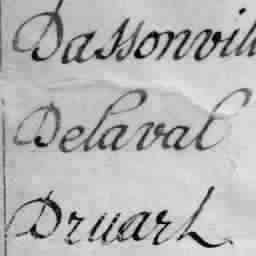 Dassonvill
Delaval
Druart